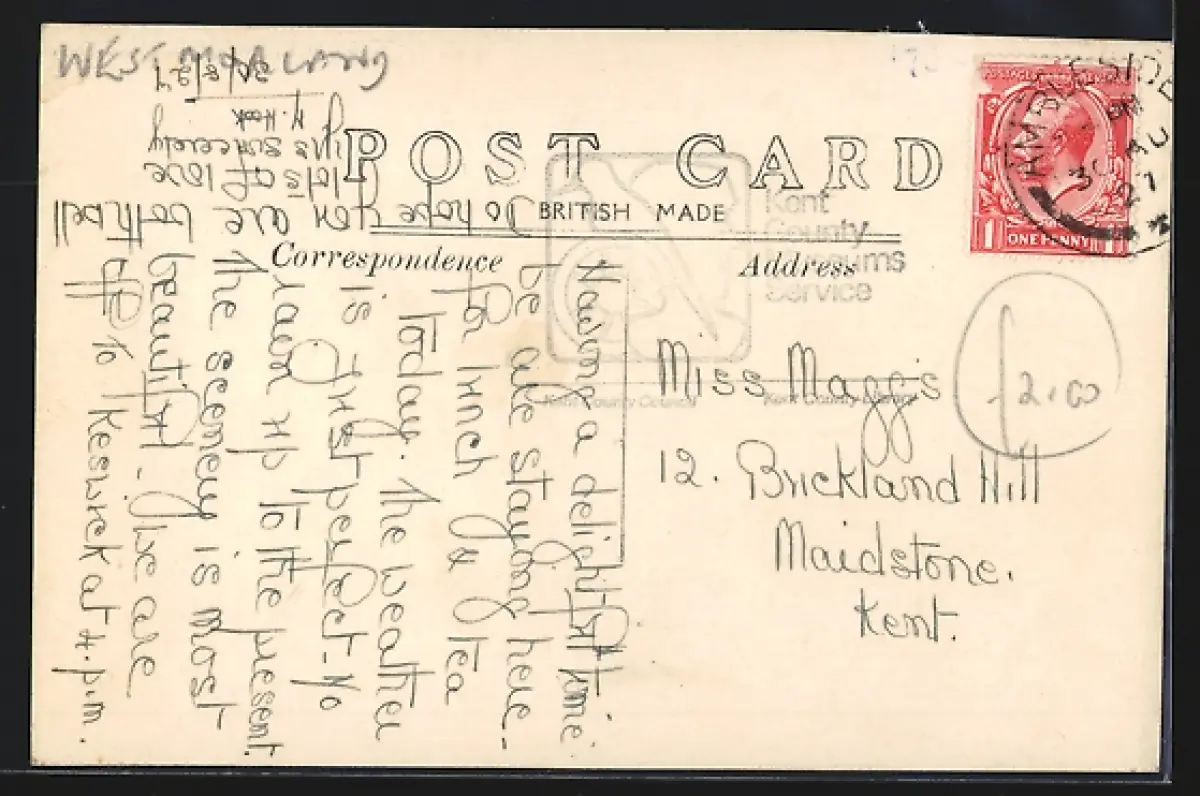 WEST MALLING
POST CARD
BRITISH MADE
Correspondence
Address
Kent
County
Museums
Service
Kent County Council
Kent County Library
POSTAGE REVENUE
1 ONE PENNY 1
AMBLESIDE
PM
30 AU
27
£2.00
Miss Maggs
12. Brickland Hill
Maidstone.
Kent.
Having a delightful time
be are staying here -
for lunch & tea
today. The weather
is just perfect - No
rain up to the present.
The scenery is most
beautiful - We are
off to Keswick at 4.p.m.
Do hope you are both well
lots of love
yrs sincerely
H. Hook
30/8/27